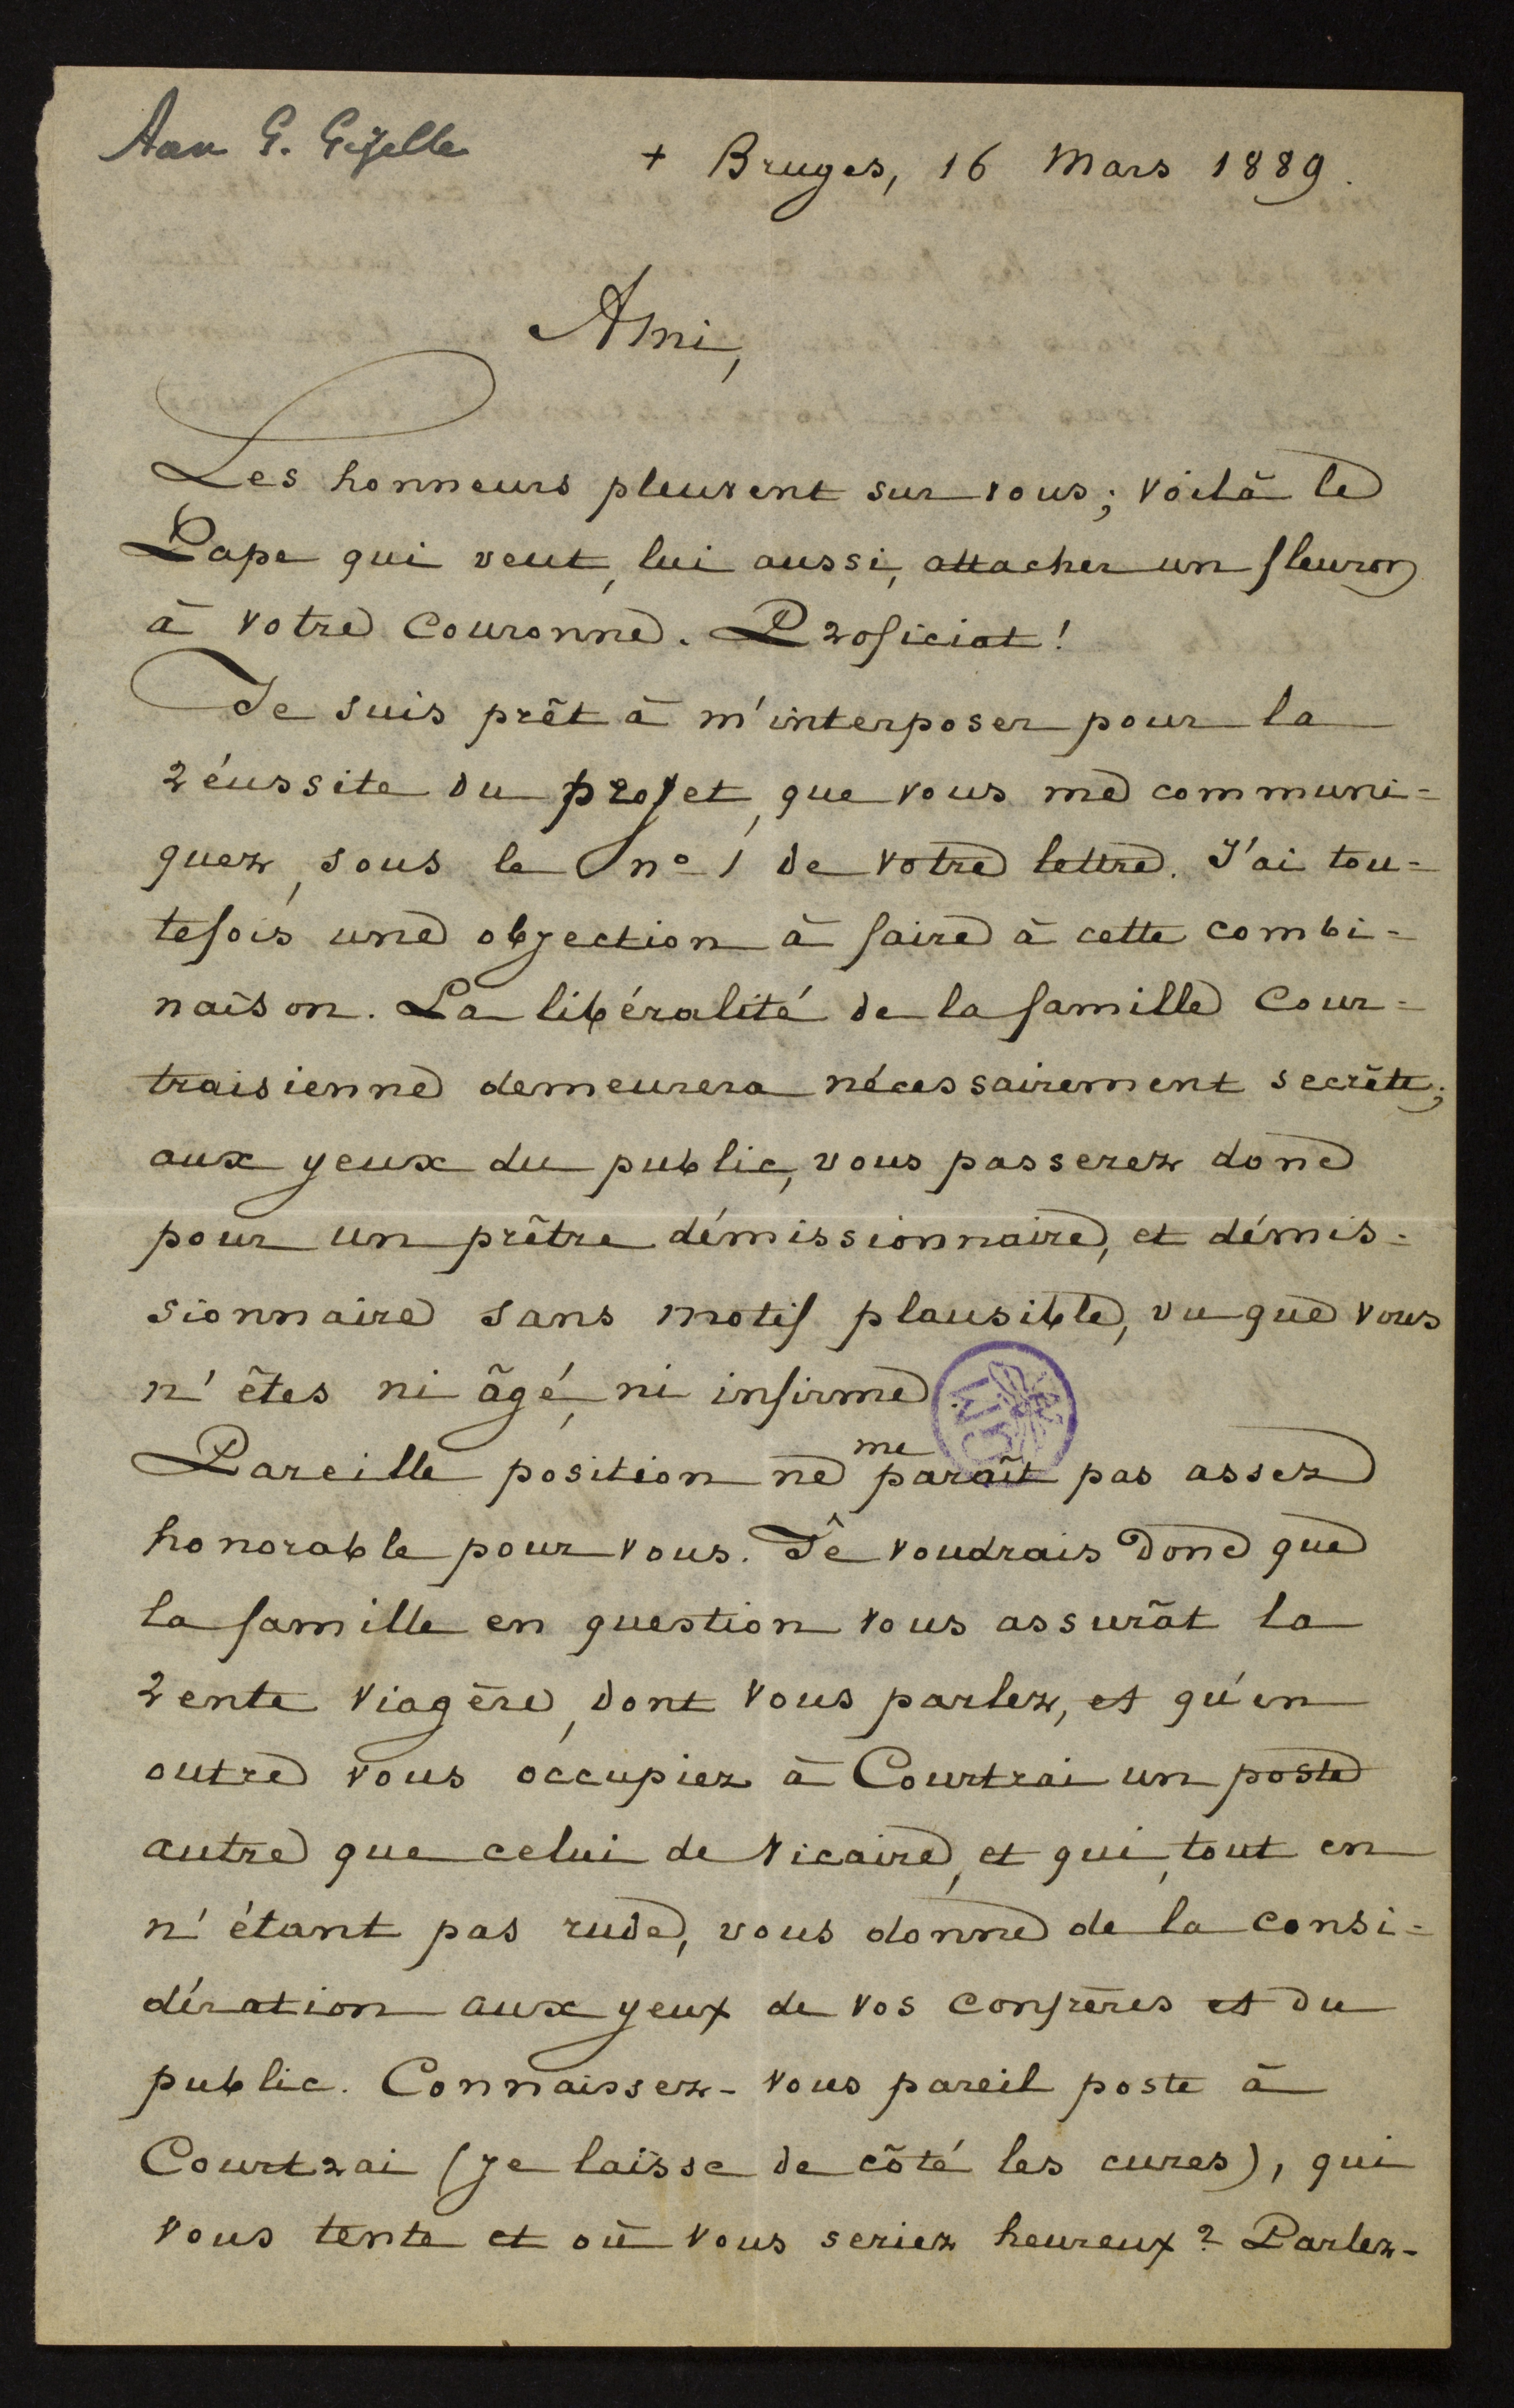 Aan G. Gezelle
+ Bruges, 16 Mars 1889.
Ami,
Les honneurs pleuvent sur vous; voilà le
Pape qui veut, lui aussi, attacher un fleuron
à votre couronne. Proficiat!
Je suis prêt à m'interposer pour la
réussite du projet, que vous me communi=
quez, sous le n° 1 de votre lettre. J'ai tou=
tefois une objection à faire à cette combi=
naison. La libéralité de la famille Cour=
traisienne demeurera nécessairement secrète;
aux yeux du public, vous passerez donc
pour un prêtre démissionnaire, et démis=
sionnaire sans motif plausible, vu que vous
n'êtes ni âgé, ni infirme.
Pareille position ne me paraît pas assez
honorable pour vous. Je voudrais donc que
la famille en question vous assurât la
rente viagère, dont vous parlez, et qu'en
outre vous occupiez à Courtrai un poste
autre que celui de vicaire, et qui, tout en
n'étant pas rude, vous donne de la consi=
dération aux yeux de vos confrères et du
public. Connaissez-vous pareil poste à
Courtrai (je laisse de côté les cures), qui
vous tente et où vous seriez heureux? Parlez-